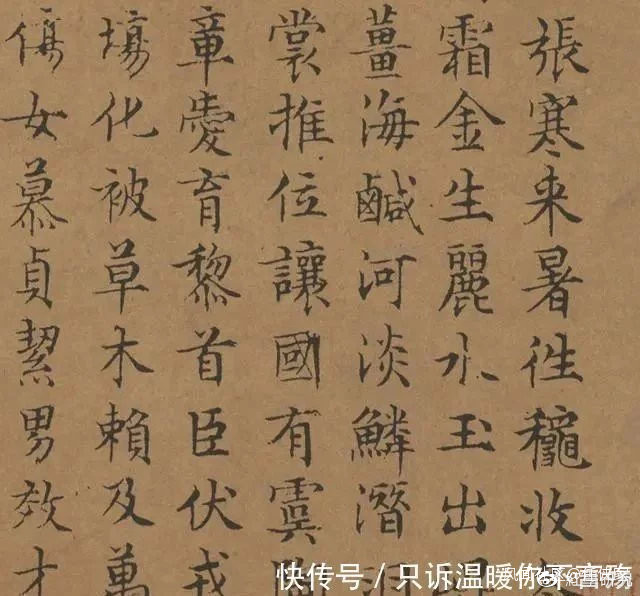 張寒来暑徃穐收
霜金生麗水玉出
薑海鹹河淡鱗潛
裳推位讓國有虞
章愛育黎首臣伏戎
場化被草木賴及萬
傷女慕貞絜男效才
快传号／只诉温暖你不言殇